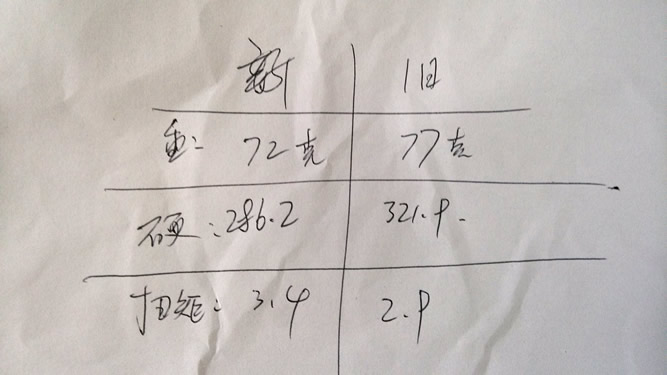 新 旧
重: 72克 77克
硬: 286.2 321.9.
扭矩: 3.4 2.9